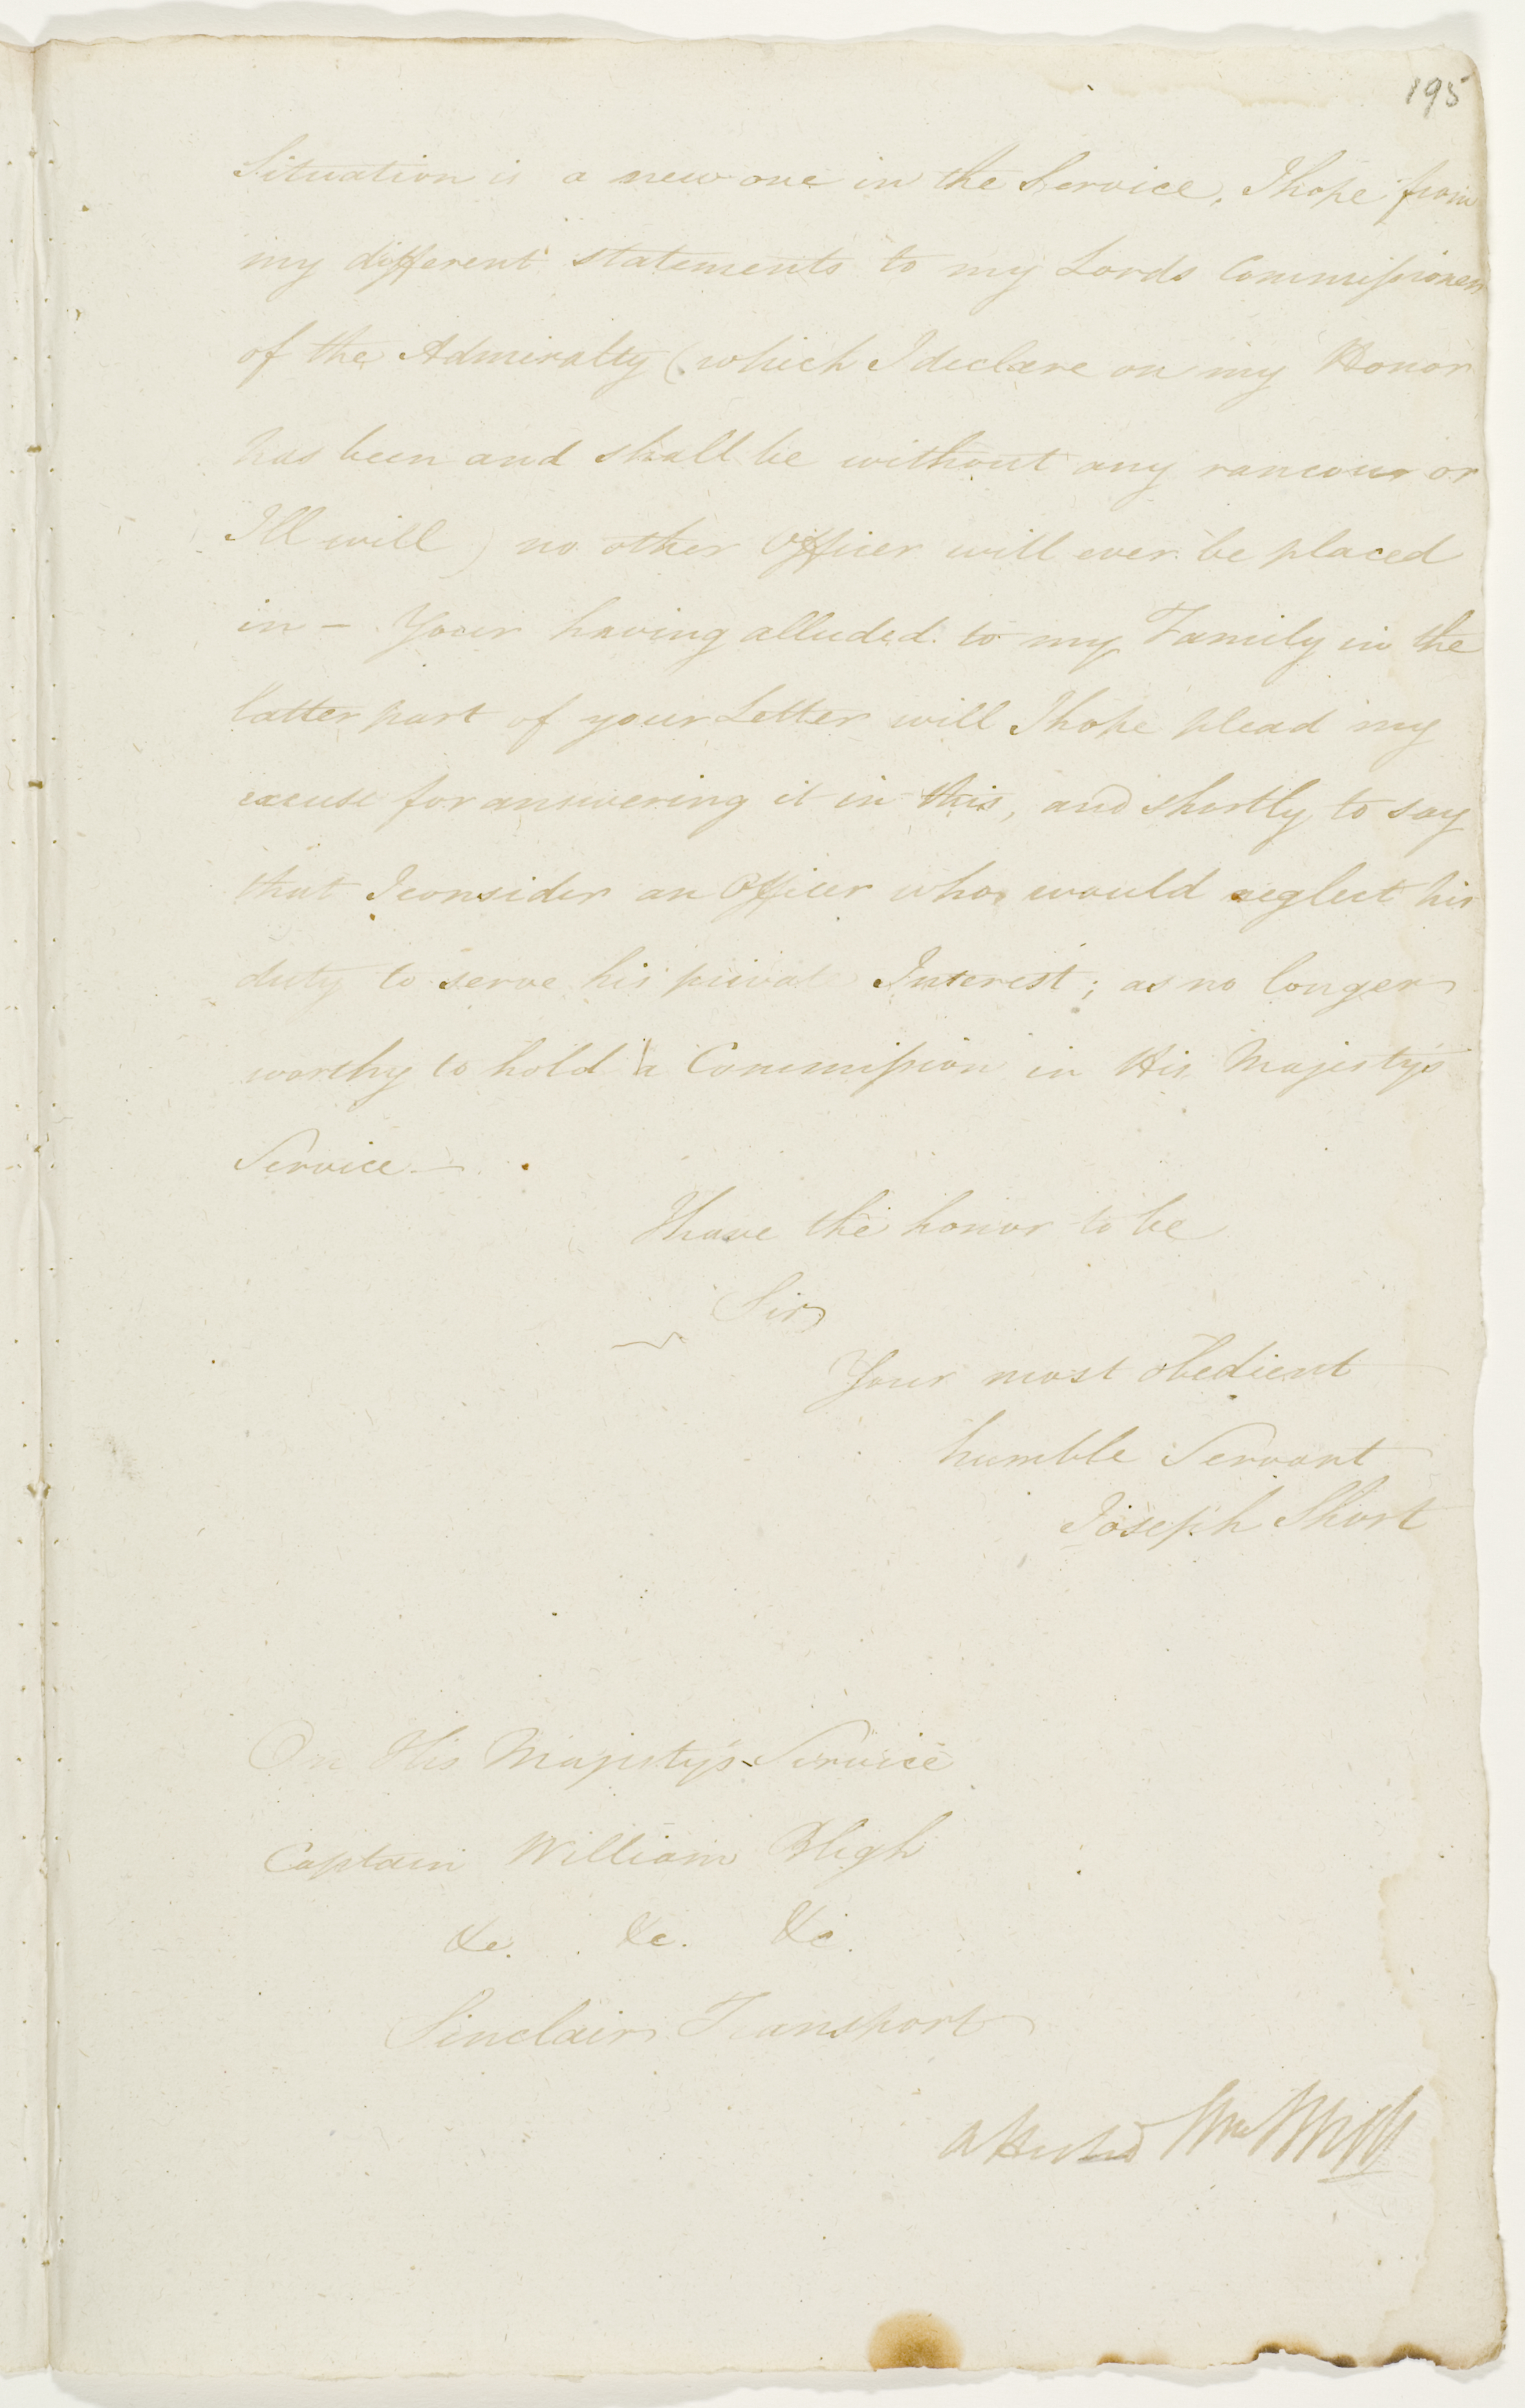 195
Situation is a new one in the Service, I hope from
my different statements to my Lords Commissioners
of the Admiralty (which I declare on my Honor
has been and shall be without any rancour or
Ill will) no other Officer will ever be placed
in – Your having alluded to my Family in the
latter part of your Letter will I hope plead my
excuse for answering it in this, and shortly to say
that I consider an Officer who would neglect his
duty to serve his private Interest; as no longer
worthy to hold a Commission in His Majestys
Service –
I have the honor to be
Sir
Your most obedient
humble Servant
Joseph Short
On His Majestys Service
Captain William Bligh
&c. &c. &c.
Sinclair Transport
Attested Wm Bligh